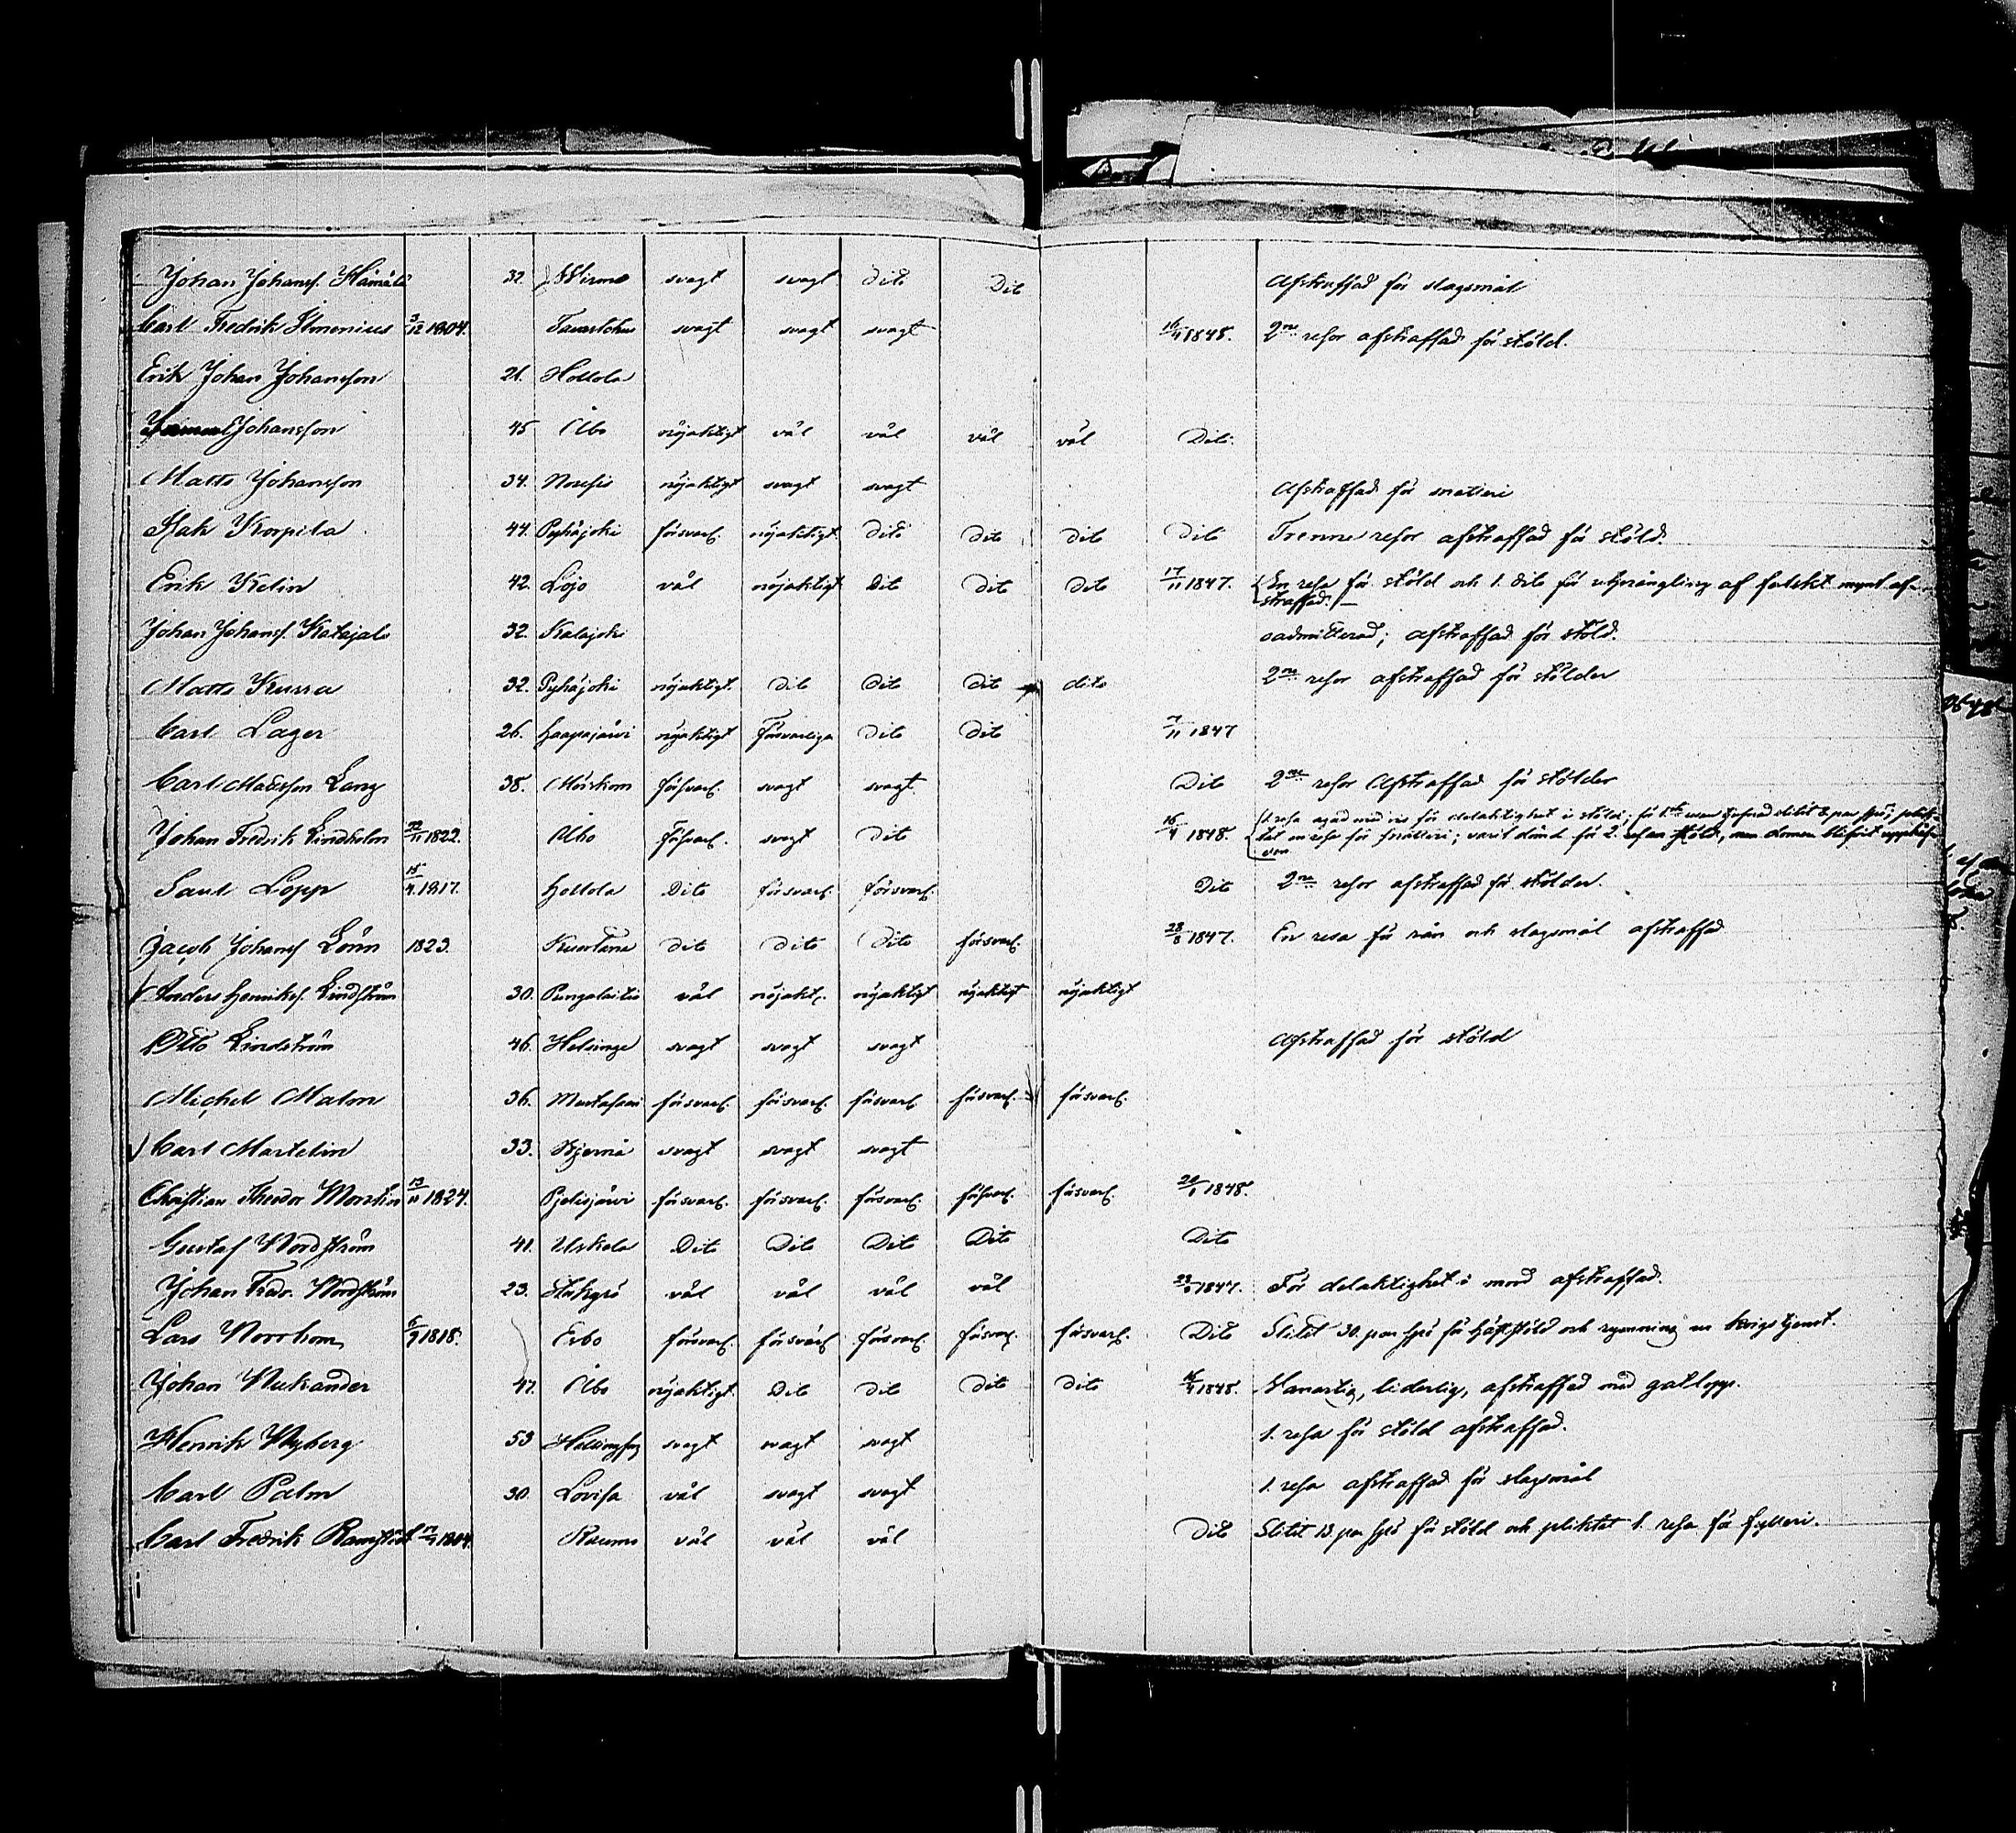 Johan Johansſ. Hämälä 32. Wirmo svagt svagt dito Dito Afstraffad för slagsmål
Carl Fredrik Ilmonius 3/12 1804. Tavastehus svagt svagt svagt 16/4 1848. 2ne resor afstraffad för stöld.
Erik Johan Johansson 21. Hollola
Johansson 45 Åbo nöjaktigt väl väl väl väl Dito
Matts Johansson 34. Nousis nöjaktigt svagt svagt Afstraffad för snatteri
Isak Korpila 44. Pyhäjoki försvarl. nöjaktigt dito dito dito dito Trenne resor afstraffad för stöld.
Erik Kelin 42. Lojo väl nöjaktigt dito dito dito 17/11 1847. En resa för stöld och 1. dito för utprångling af falskt mynt af-
straffad.
Johan Johansſ. Katajala 32. Kalajoki oadmitterad; afstraffad för stöld.
Matts Kurra 32. Pyhäjoki nöjaktigt dito dito dito dito 2ne resor afstraffad för stölder
Carl Lager 26. Haapajärvi nöjaktigt Försvarliga dito dito 7/11 1847
Carl Matsson Lang 38. Mörskom försvarl. svagt svagt Dito 2ne resor Afstraffad för stölder
Johan Fredrik Lindholm 22/11 1822. Åbo försvarl. svagt dito 16/4 1848. 1. resa agad med ris för delaktighet i stöld; för 1sta resan stöld slitit 8. par spö; plik-
tat en resa för snatteri; varit dömd för 2. resan stöld, men domen blifvit upphäf-
ven
Saul Lopp 15/4 1817. Hollola Dito försvarl. försvarl. Dito 2ne resor afstraffad för stölder.
Jacob Johansſ Lönn 1823. Kuortane dito dito Dito försvarl. 28/8 1847. En resa för rån och slagsmål afstraffad
Anders Henriksſ. Lindström 30. Pungalaitio väl nöjakt. nöjaktigt nöjaktigt nöjaktigt
Otto Lindström 46. Helsinge svagt svagt svagt Afstraffad för stöld
Michel Malm 36. Mustasaari försvarl. försvarl. försvarl. försvarl. försvarl.
Carl Martelin 33. Bjerno svagt svagt svagt
Christian Theodor 13/11 1824. Pielisjärvi försvarl. försvarl. försvarl. försvarl. försvarl. 20/1 1848.
Gustaf Nordström 41. Uskela Dito Dito Dito Dito Dito
Johan Fredr. Nordström 23. väl väl väl väl 23/8 1847. För delaktighet i mord afstraffad.
Lars Norrhom 6/9 1818. Esbo försvarl. försvarl. försvarl. försvarl. försvarl. Dito Slitit 30. par spö för häststöld och rymning ur krigstjenst.
Johan Nukander 47. Åbo nöjaktigt Dito dito dito dito 16/4 1848. Vanartig, liderlig, afstraffad med gatlopp.
Henrik Nyberg 53 Helsingfors svagt svagt svagt 1. resa för stöld afstraffad.
Carl Palm 30. Lovisa väl svagt svagt 1. resa afstraffad för slagsmål
Carl Fredrik 1804. Raumo väl väl väl Dito Slitit 13. par spö för stöld och pliktat 1. resa för fylleri.